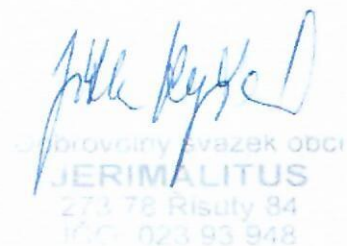 Dobrovolný svazek obcí
JERIMALITUS
273 78 Řisuty 84
IČO: 023 93 948